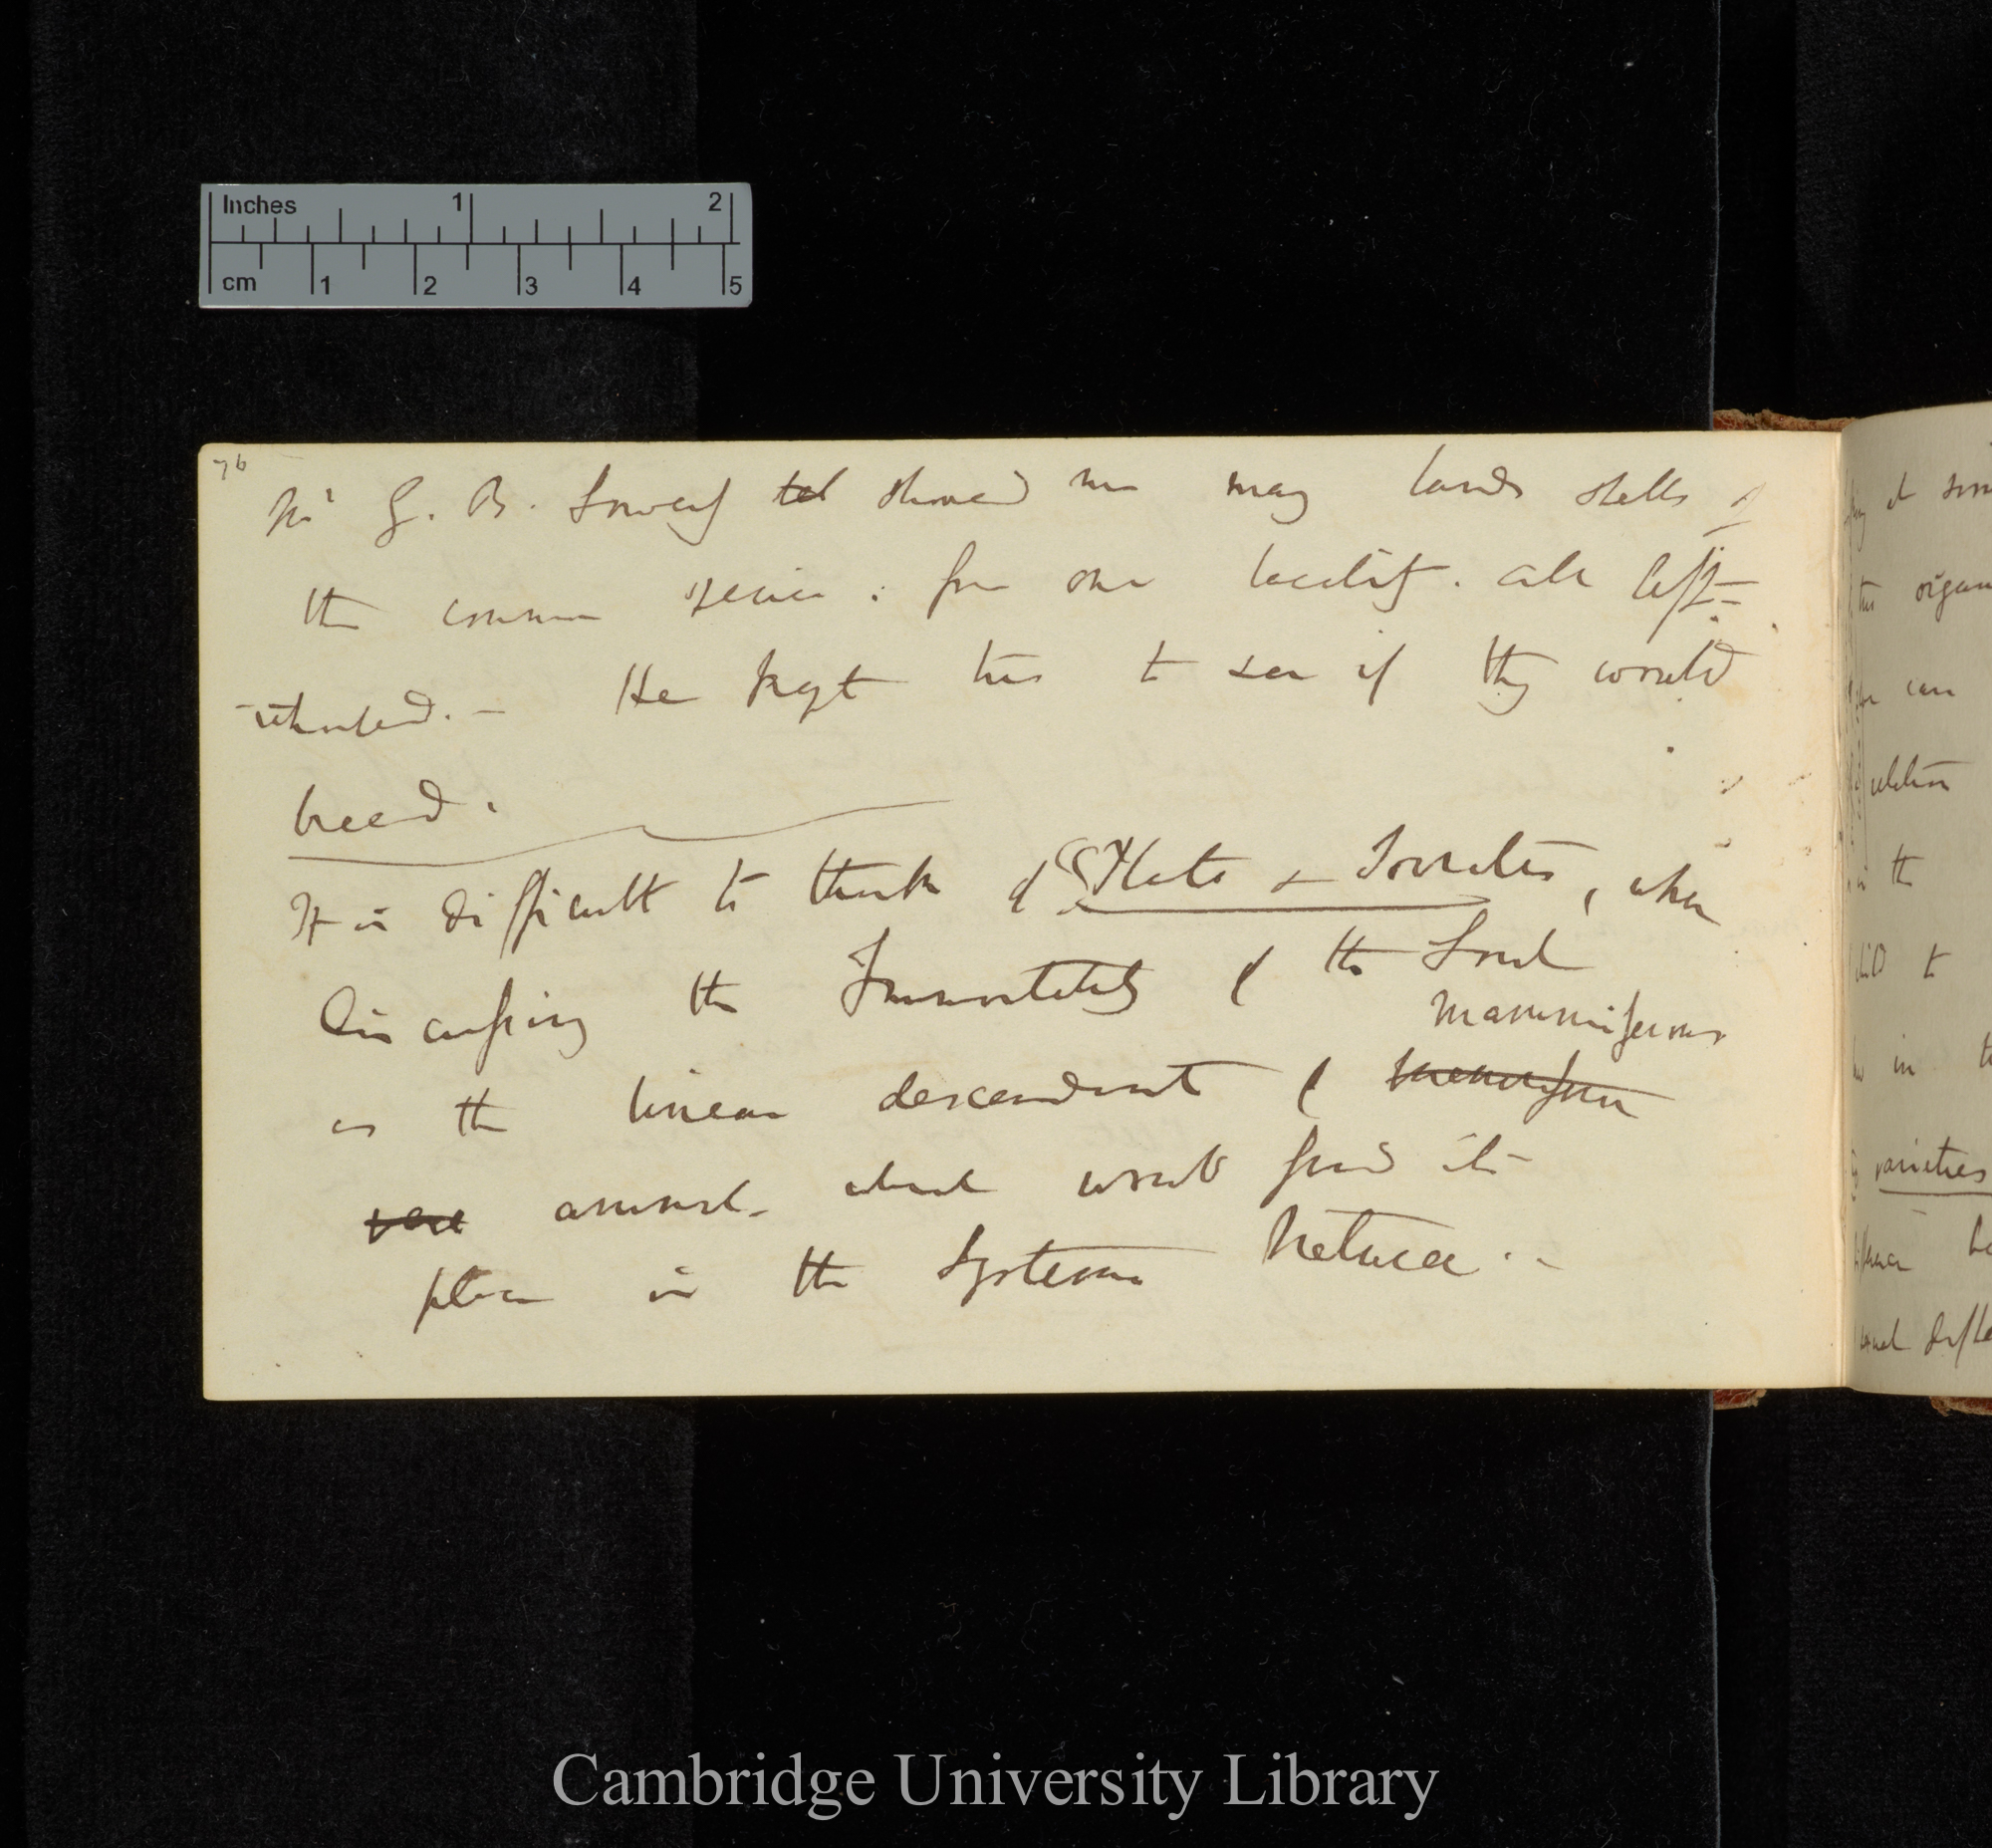 Inches 1 2
cm 1 2 3 4 5
76
Mr G. B. Sowerby tol showed me many lands shells of
the common species: from one locality. all left-
-whorled.— He kept two to see if they would
breed.
It is difficult to think of Plato & Socrates, when
discussing the Immortality of the Soul
mammiferous
as the linear descendant of mammiferous
animal. which would find its
place in the Systema Naturae.—
varieties
Cambridge University Library